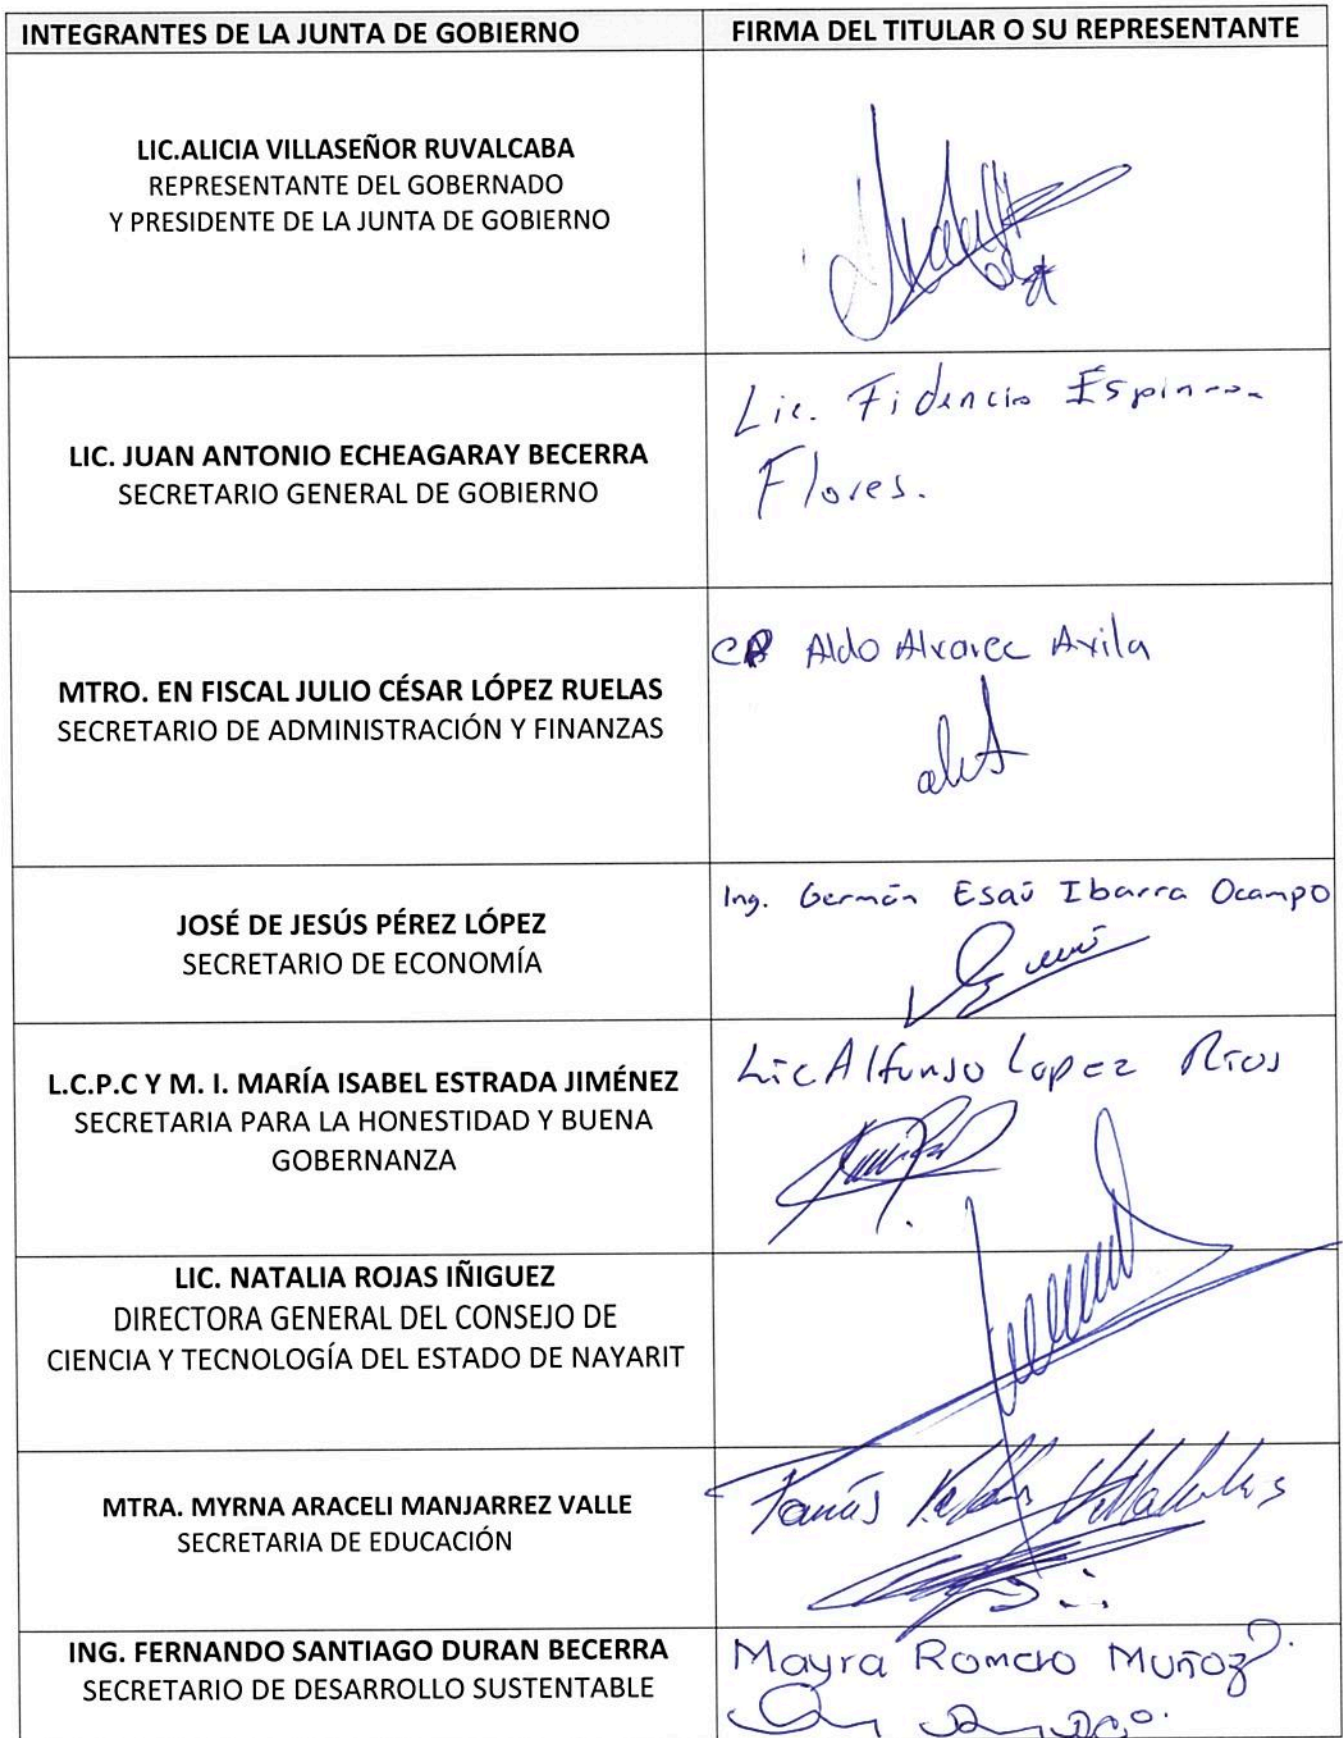 INTEGRANTES DE LA JUNTA DE GOBIERNO
FIRMA DEL TITULAR O SU REPRESENTANTE
LIC.ALICIA VILLASEÑOR RUVALCABA
REPRESENTANTE DEL GOBERNADO
Y PRESIDENTE DE LA JUNTA DE GOBIERNO
LIC. JUAN ANTONIO ECHEAGARAY BECERRA
SECRETARIO GENERAL DE GOBIERNO
Lic. Fidencio Espinoza
Flores.
MTRO. EN FISCAL JULIO CÉSAR LÓPEZ RUELAS
SECRETARIO DE ADMINISTRACIÓN Y FINANZAS
CP Aldo Alvarez Avila
JOSÉ DE JESÚS PÉREZ LÓPEZ
SECRETARIO DE ECONOMÍA
Ing. Germán Esaú Ibarra Ocampo
L.C.P.C Y M. I. MARÍA ISABEL ESTRADA JIMÉNEZ
SECRETARIA PARA LA HONESTIDAD Y BUENA
GOBERNANZA
Lic Alfonso Lopez Rios
LIC. NATALIA ROJAS IÑIGUEZ
DIRECTORA GENERAL DEL CONSEJO DE
CIENCIA Y TECNOLOGÍA DEL ESTADO DE NAYARIT
MTRA. MYRNA ARACELI MANJARREZ VALLE
SECRETARIA DE EDUCACIÓN
Tomás
ING. FERNANDO SANTIAGO DURAN BECERRA
SECRETARIO DE DESARROLLO SUSTENTABLE
Mayra Romero Muñoz